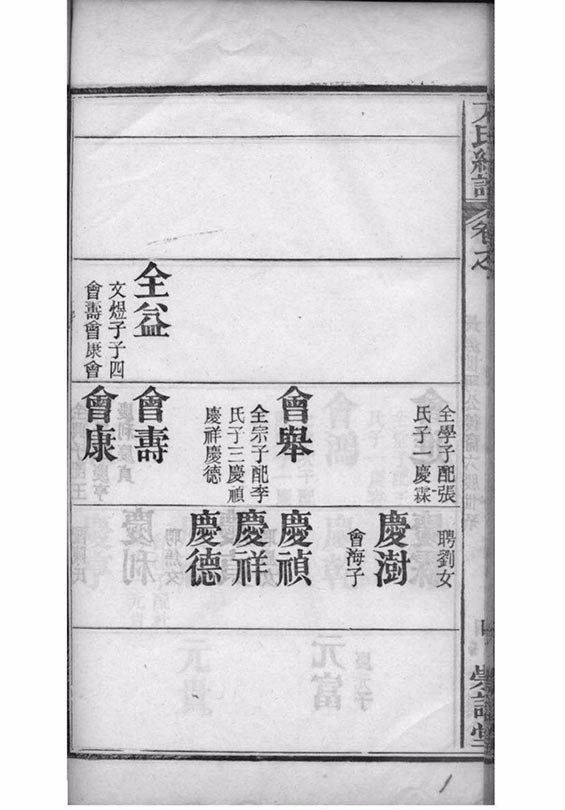 氏統譜
卷之
全學子配張
氏子一慶霖
聘劉女
慶澍
會海子
會舉
全宗子配李
氏子三慶禎
慶祥慶德
慶禎
慶祥
慶德
全益
文煜子子四
會壽會康會
會壽
會康
1